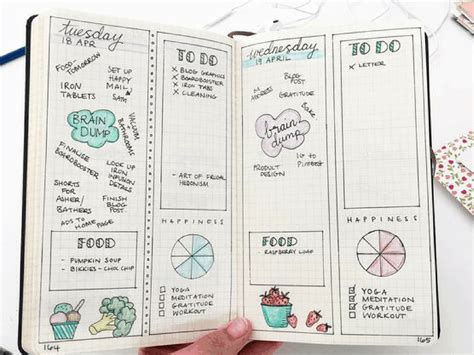 tuesday
18 APR
FOOD - TOMORROW
SET UP
HAPPY
MAIL
SATA
IRON
TABLETS
VACUUM
+
BATHROOMS
BRAIN
DUMP
FINALISE
BOARDBOOSTER
LOOK UP
IRON
INFUSION
DETAILS
SHORTS
FOR
ASHER/
BATHERS
FINISH
BLOG
POST
ADS TO HOME PAGE
FOOD
- PUMPKIN SOUP
- BIKKIES - CHOC CHIP
164
TO DO
X BLOG GRAPHICS
X BOARDBOOSTER
X IRON TABS
X CLEANING
- ART OF FRUGAL
HEDONISM
HAPPINESS
YOGA
MEDITATION
GRATITUDE
WORKOUT
wednesday
19 APRIL
BLOG
POST
ADDRESS
GRATITUDE
BAKE
brain
dump
IG to
PINTEREST
PRODUCT
DESIGN
FOOD
RASPBERRY LOAF
TO DO
X LETTER
HAPPINESS
YOGA
MEDITATION
GRATITUDE
WORKOUT
165